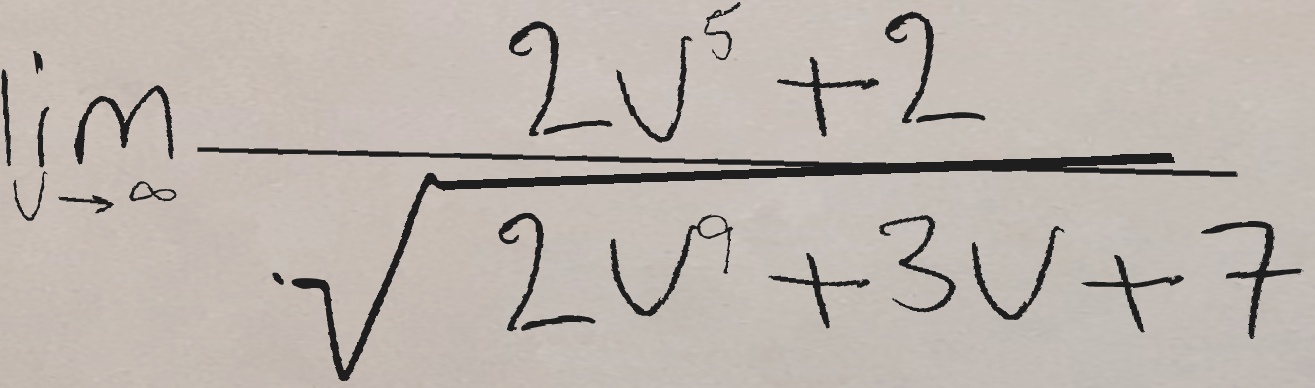 \lim_{v \to \infty} \frac{2v^5 + 2}{\sqrt{2v^9 + 3v + 7}}